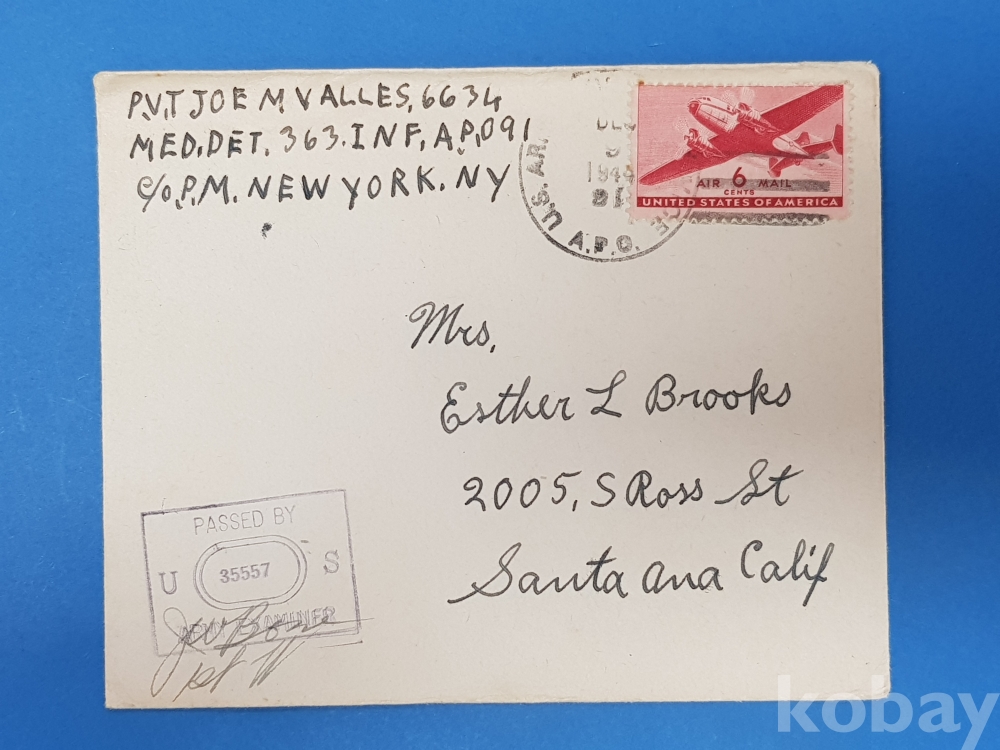 P.V.T JOE M VALLES, 6634
MED. DET. 363. INF. A.P.O 91
c/o. P.M. NEW YORK. NY
U.S. AR.
A.P.O.
AIR 6 MAIL
CENTS
UNITED STATES OF AMERICA
Mrs,
Esther L Brooks
2005, S Ross St
Santa Ana Calif
PASSED BY
U 35557 S
ARMY EXAMINER
kobay